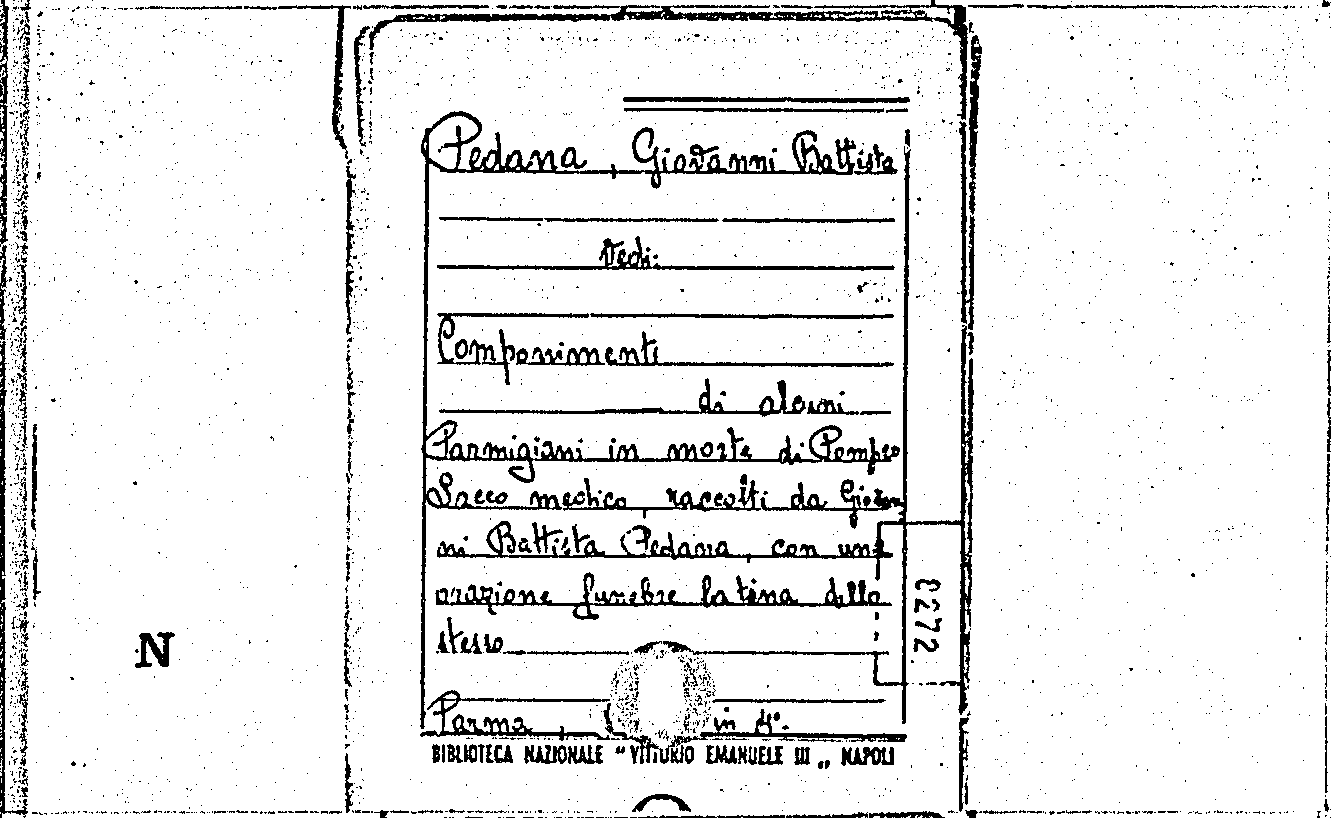 Pedana, Giovanni Battista
Vedi:
Componimenti
di alcuni
Parmigiani in morte di Pompeo
Sacco medico, raccolti da Giovan
ni Battista Pedana, con una
orazione funebre latina dello
stesso
Parma, in 4°.
BIBLIOTECA NAZIONALE "VITTORIO EMANUELE III„ NAPOLI
N